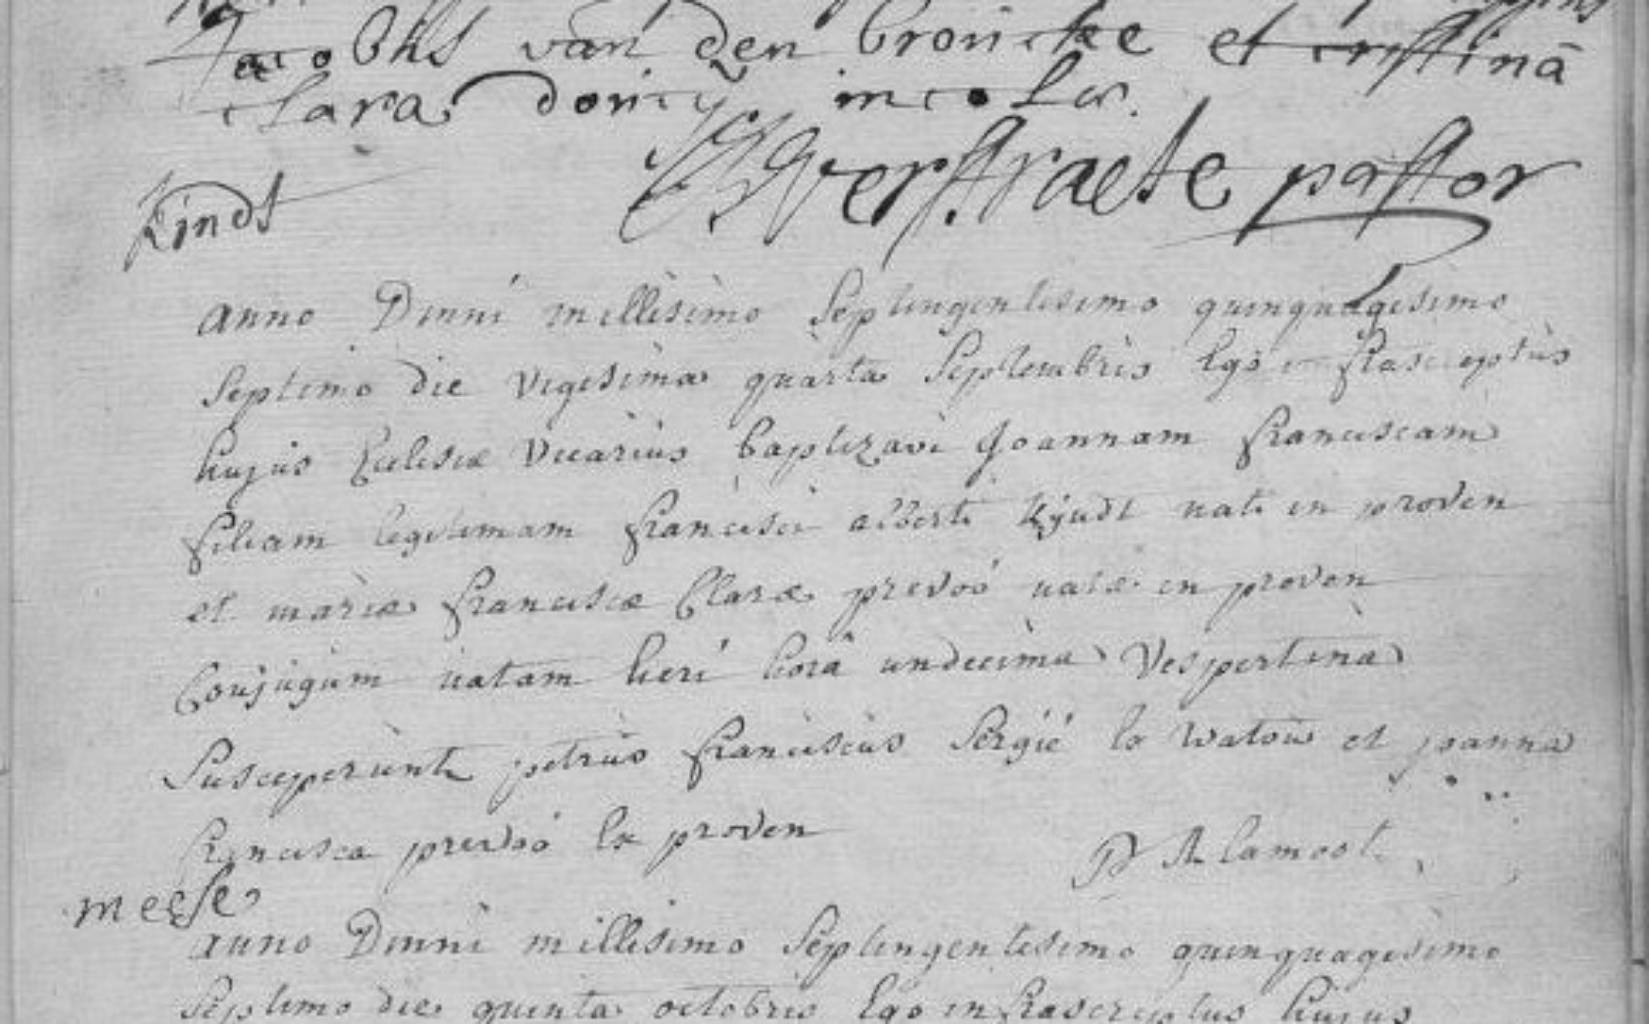 Jacobus van den bronicke et cristina
clara doncq incolæ.
Verstraete pastor
Kindt
anno Dmni millesimo septingentesimo quinquagesimo
septimo die vigesima quarta septembris Ego infrascriptus
hujus Ecclesiæ vicarius baptizavi Joannam franciscam
filiam legitimam francisci alberti Kyndt nati in proven
et mariæ franciscæ Claræ prevoó natæ in proven
Conjugum natam heri horâ undecima vespertina
Susceperunt petrus franciscus Sergié ex watou et joanna
francisca prevoó ex proven
meese
anno Dmni millesimo septingentesimo quinquagesimo
septimo die quinta octobris Ego infrascriptus hujus